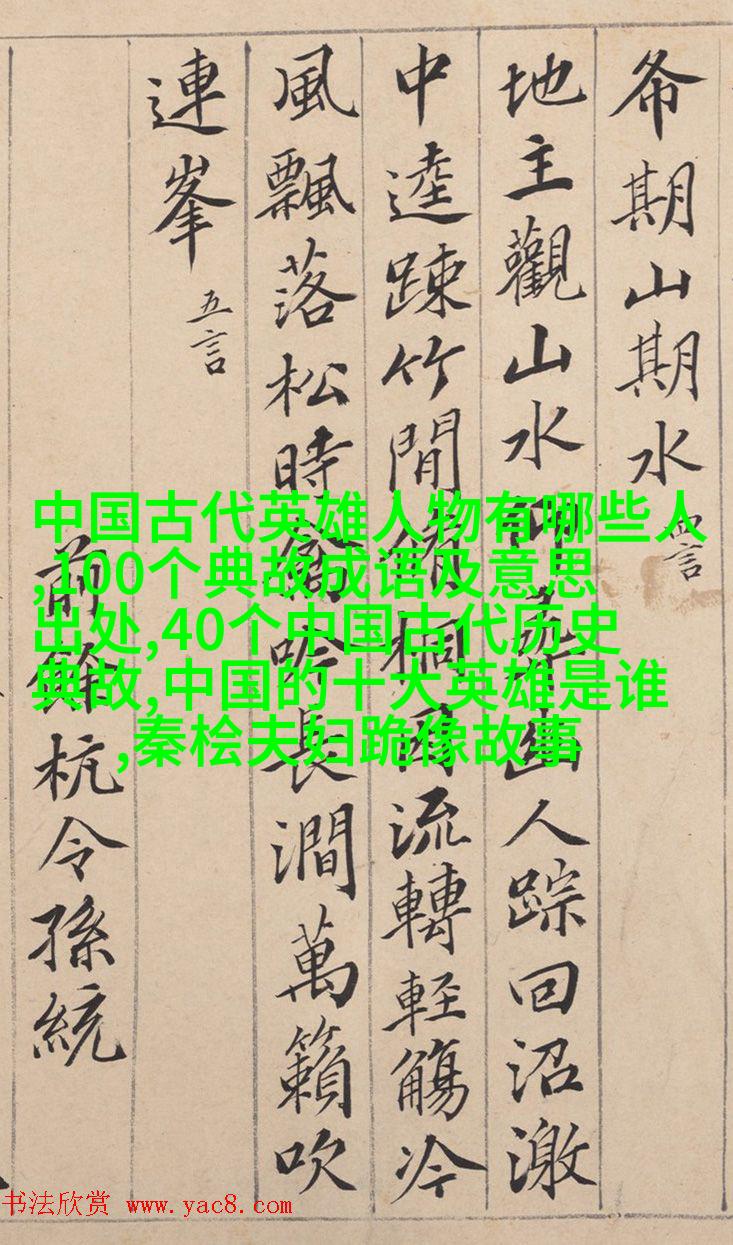 希期山期水 四言
地主觀山水仰尋幽人踪回沼激
中逵踈竹間脩桐因流轉輕觴冷
風飄落松時禽吟長澗萬籟吹
連峯 五言
前餘杭令孫統
中国古代英雄人物有哪些人
,100个典故成语及意思
出处,40个中国古代历史
典故,中国的十大英雄是谁
,秦桧夫妇跪像故事
书法欣赏 www.yac8.com